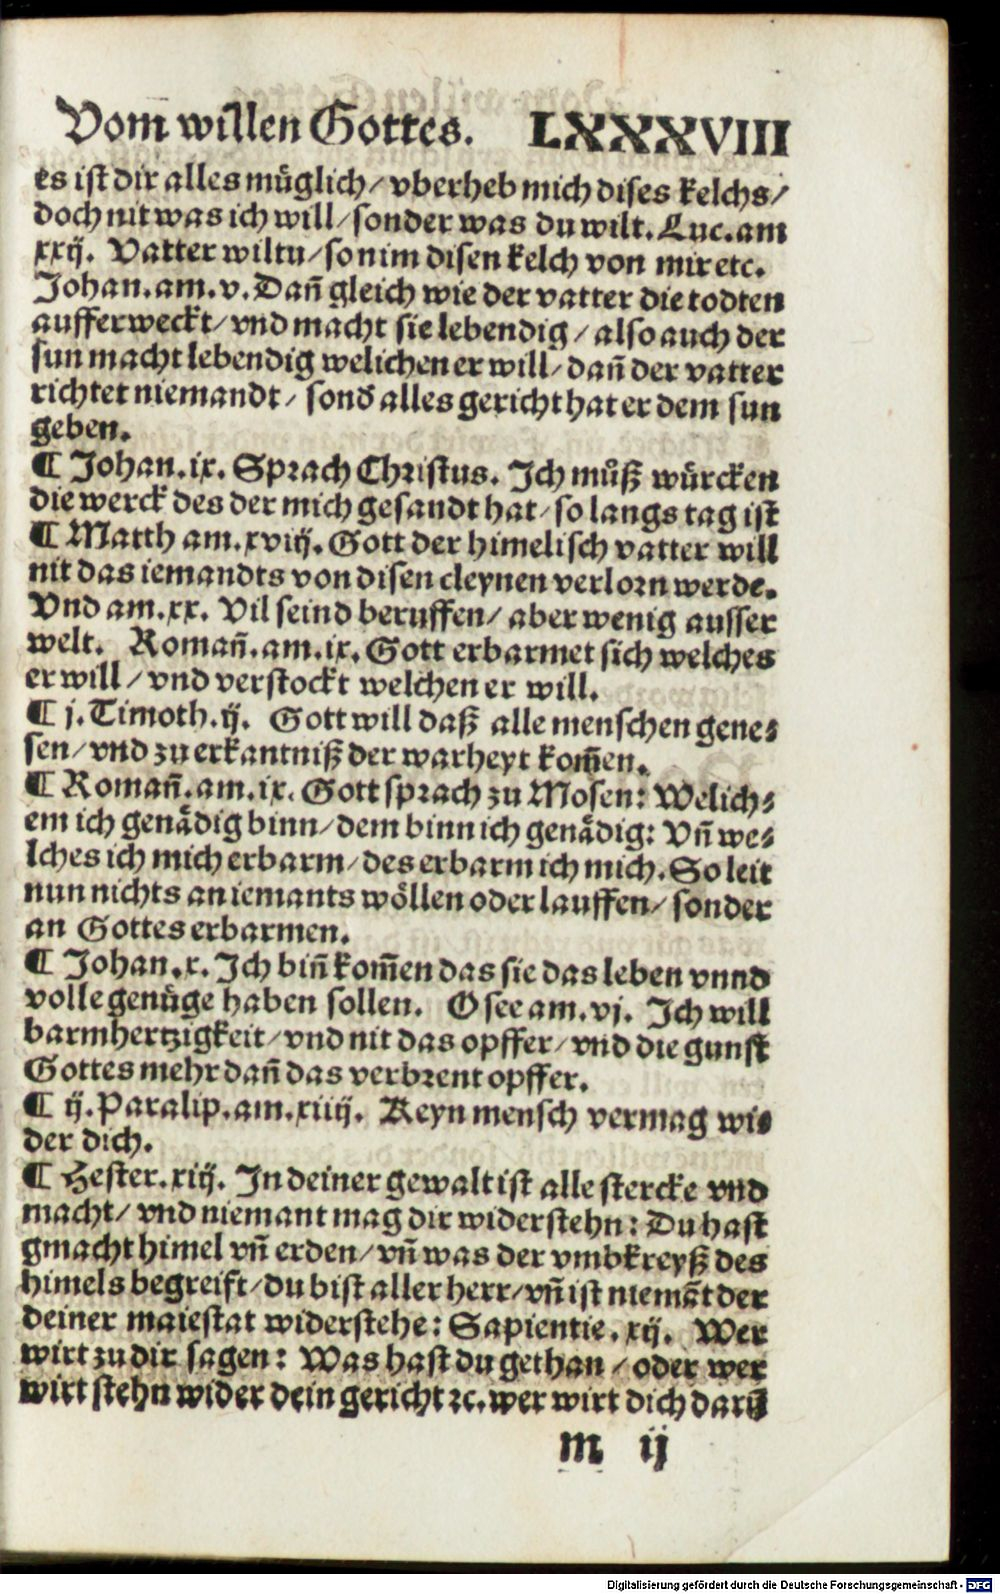 Vom willen Gottes. LXXXVIII
es ist dir alles müglich/ vberheb mich dises kelchs/
doch nit was ich will/ sonder was du wilt. Luc. am
xxij. Vatter wiltu/ so nim disen kelch von mir etc.
Johan. am. v. Dañ gleich wie der vatter die todten
aufferweckt/ vnd macht sie lebendig/ also auch der
sun macht lebendig welichen er will/ dañ der vatter
richtet niemandt/ sonď alles gericht hat er dem sun
geben.
¶ Johan. ix. Sprach Christus. Ich můß würcken
die werck des der mich gesandt hat/ so langs tag ist
¶ Matth am. xviij. Gott der himelisch vatter will
nit das iemandts von disen cleynen verlorn werde.
Vnd am. xx. Vil seind beruffen/ aber wenig ausser
welt. Romañ. am. ix. Gott erbarmet sich welches
er will/ vnd verstockt welchen er will.
¶ j. Timoth. ij. Gott will daß alle menschen gene⸗
sen/ vnd zu erkantniß der warheyt kom̃en.
¶ Romañ. am. ix. Gott sprach zu Mosen: Welich⸗
em ich genådig binn/ dem binn ich genådig: Vñ we⸗
lches ich mich erbarm/ des erbarm ich mich. So leit
nun nichts an iemants wöllen oder lauffen/ sonder
an Gottes erbarmen.
¶ Johan. x. Ich biñ kom̃en das sie das leben vnnd
volle genüge haben sollen. Osee am. vj. Ich will
barmhertzigkeit/ vnd nit das opffer/ vnd die gunst
Gottes mehr dañ das verbrent opffer.
¶ ij. Paralip. am. xiiij. Keyn mensch vermag wi⸗
der dich.
¶ Hester. xiij. In deiner gewalt ist alle stercke vnd
macht/ vnd niemant mag dir widerstehn: Du hast
gmacht himel vñ erden/ vñ was der vmbkreyß des
himels begreift/ du bist aller herr/ vñ ist niemãt der
deiner maiestat widerstehe: Sapientie. xij. Wer
wirt zu dir sagen: Was hast du gethan/ oder wer
wirt stehn wider dein gericht ꝛc. wer wirt dich darũ
m ij
Digitalisierung gefördert durch die Deutsche Forschungsgemeinschaft - DFG